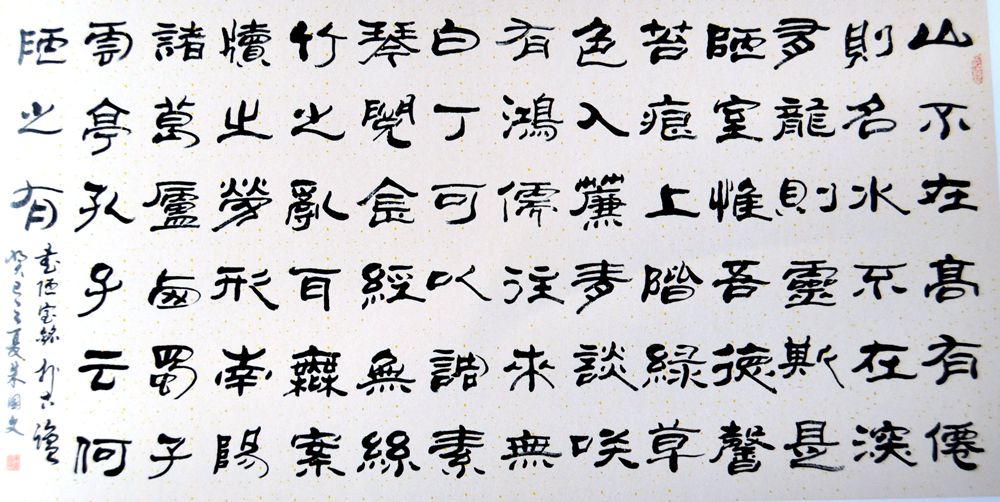 山不在高有僊
則名水不在深
多龍則靈斯是
陋室惟吾德馨
苔痕上階綠草
色入薕青談咲
有鴻儒往來無
白丁可以調素
琴閱金經無絲
竹之亂耳無案
牘之勞形南陽
諸葛廬西蜀子
雲亭孔子云何
陋之有
書陋室銘於古
癸巳之夏朱國文